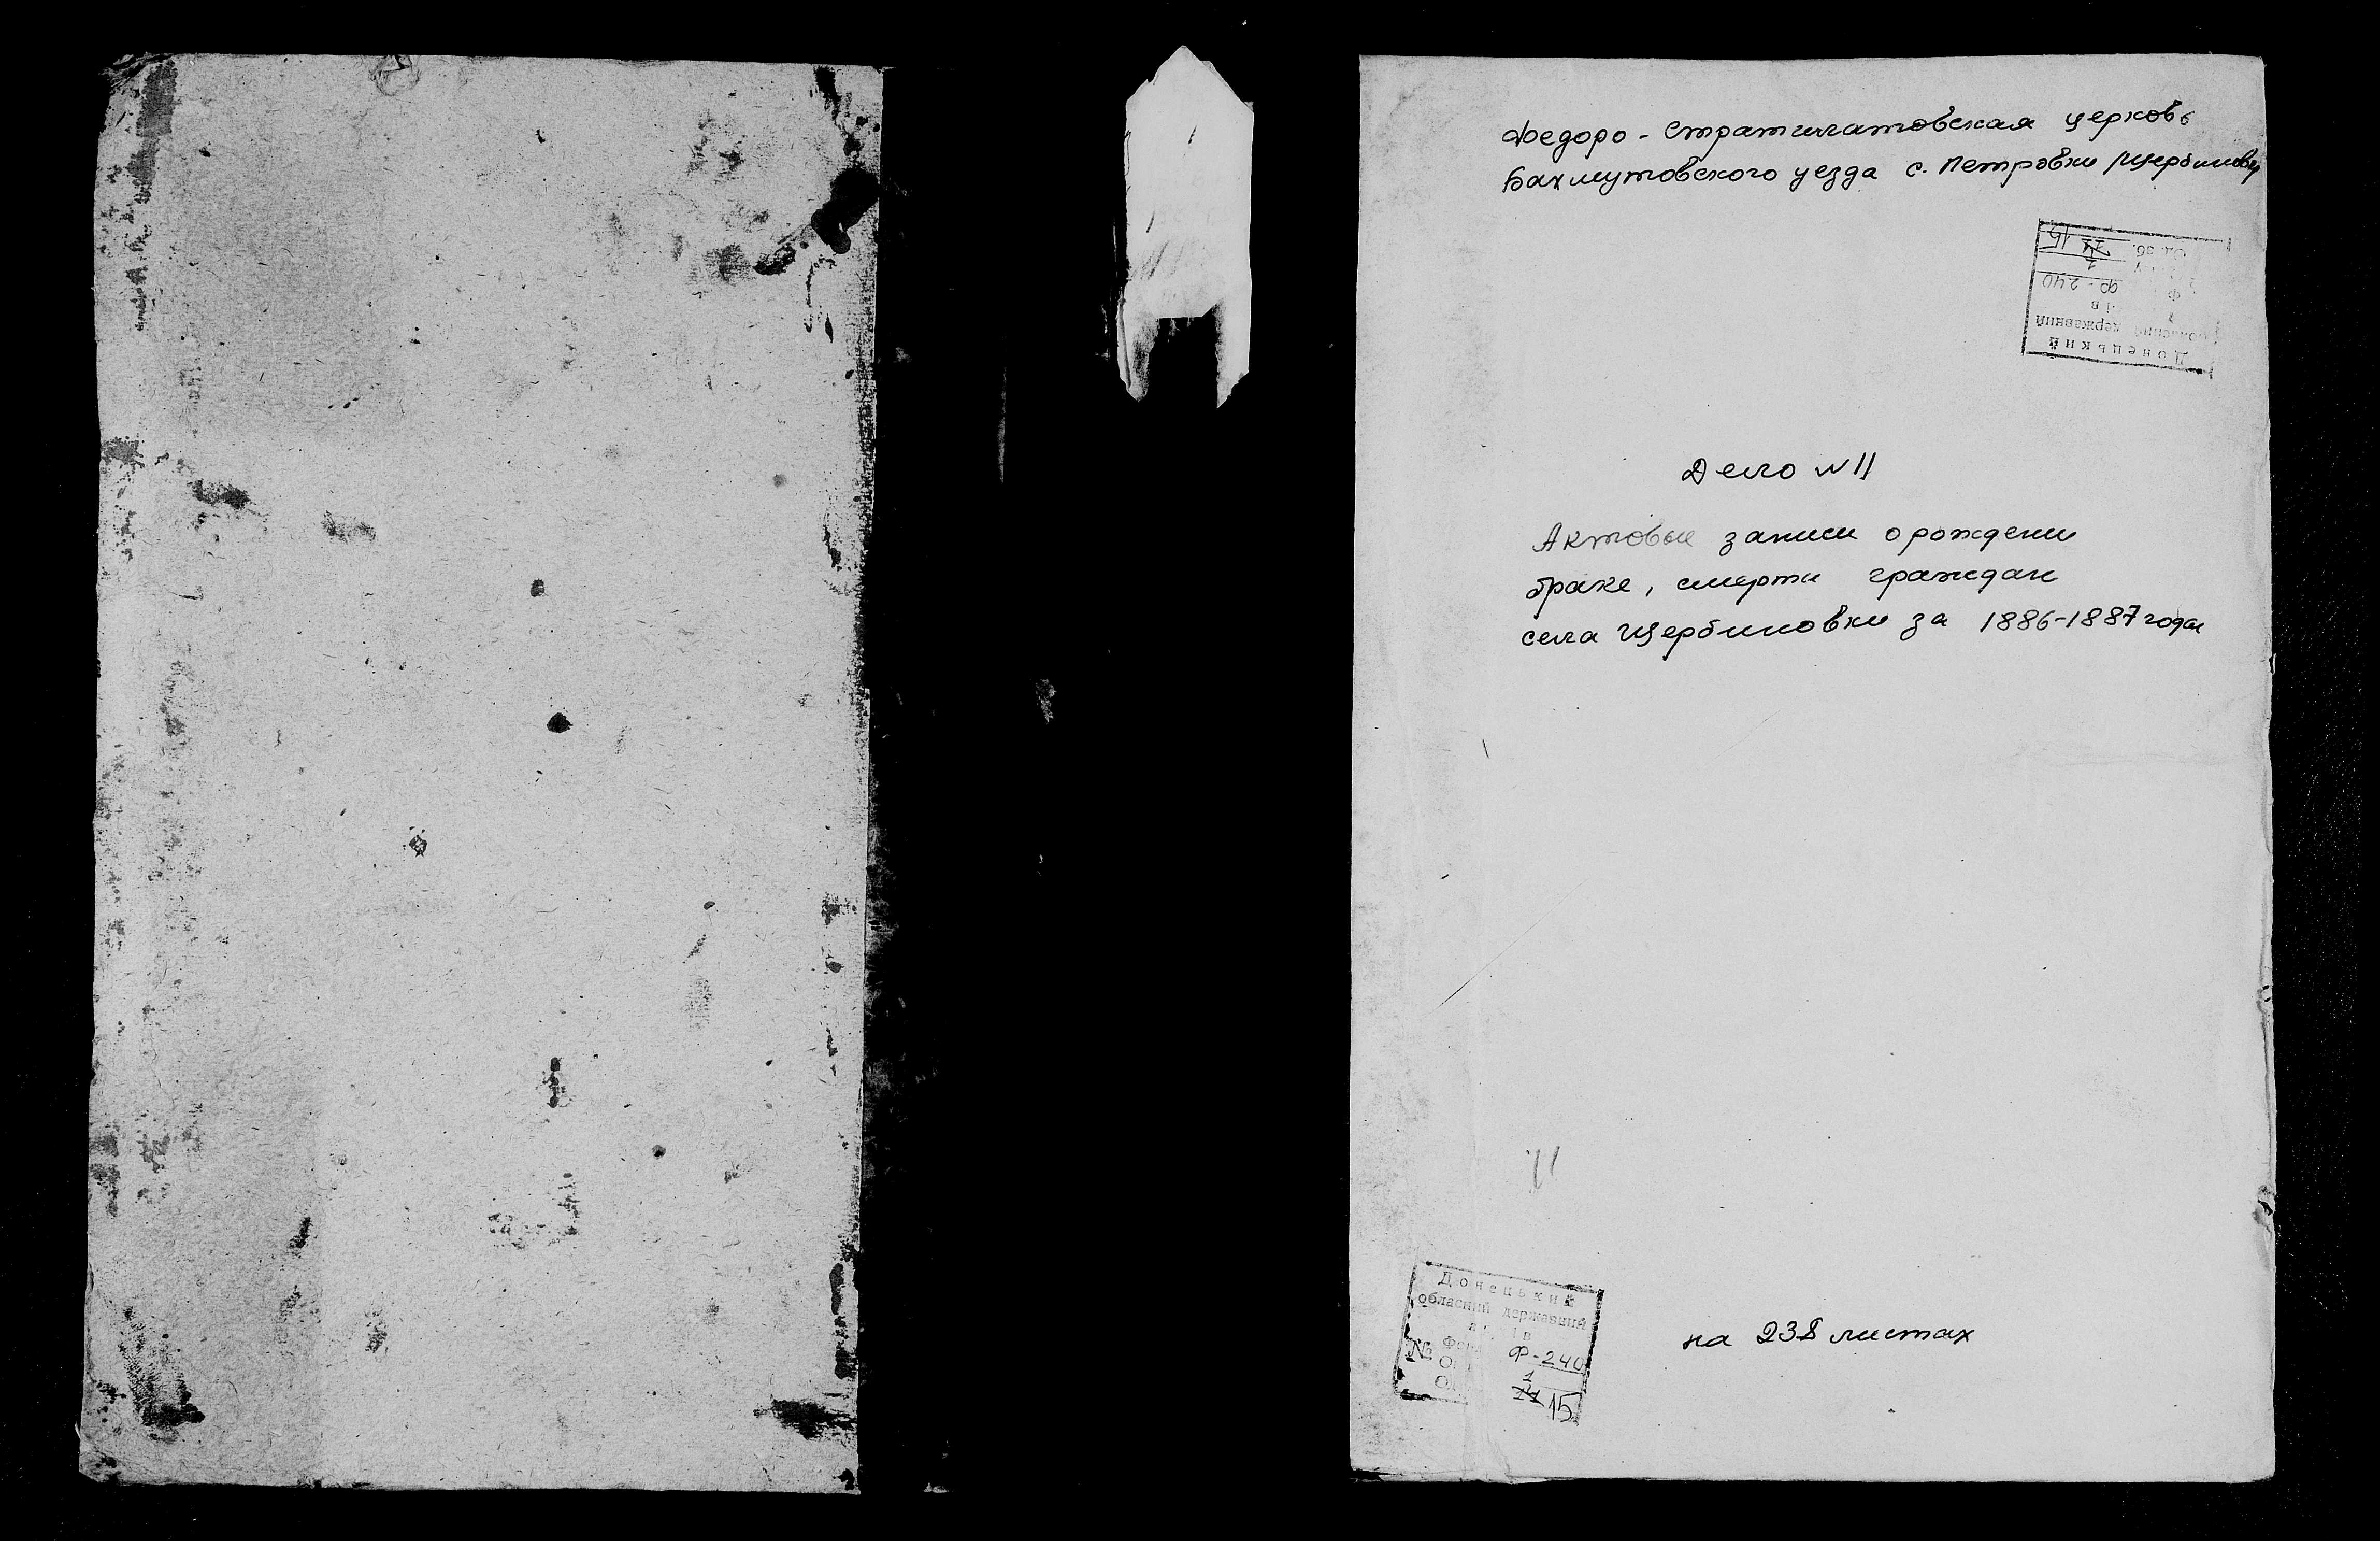 Федоро-Стратилатовская церковь
Бахмутовского уезда с. Петровки /Щербиновка/
Донецький
обласний державний
Ф-240
1
11 15
Дело N 11
Актовые записи о рождении
браке, смерти граждан
села Щербиновки за 1886-1887 годы
Донецький
обласний державний
№ Ф-240
1
11 15
на 238 листах